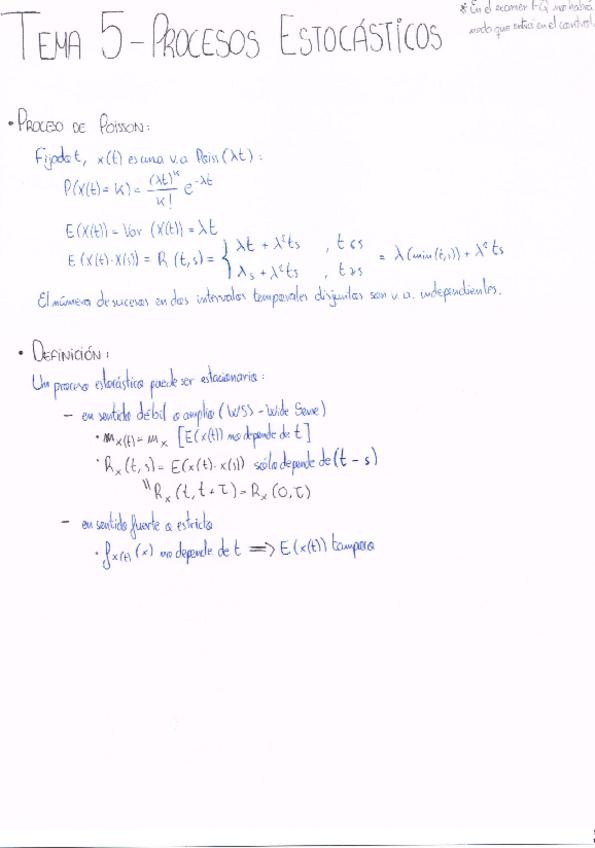 TEMA 5 - PROCESOS ESTOCÁSTICOS
* En el examen no habrá
nada que entró en el control.
• PROCESO DE POISSON:
Fijada t, x(t) es una v.a Poiss(λt):
P(X(t)=K) = (λt)^K / K! e^-λt
E(X(t)) = Var (X(t)) = λt
E(X(t)·X(s)) = R(t,s) = { λt + λ²ts , t≤s
λs + λ²ts , t≥s
= λ(min(t,s)) + λ²ts
El número de sucesos en dos intervalos temporales disjuntos son v.a. independientes.
• DEFINICIÓN:
Un proceso estocástico puede ser estacionario:
- en sentido débil o amplio (WSS - Wide Sense)
• m_x(t) = m_x [E(x(t)) no depende de t]
• R_x(t,s) = E(x(t)·x(s)) sólo depende de (t-s)
" R_x(t,t+τ) = R_x(0,τ)
- en sentido fuerte o estricto
• f_x(t)(x) no depende de t ⟹ E(x(t)) tampoco